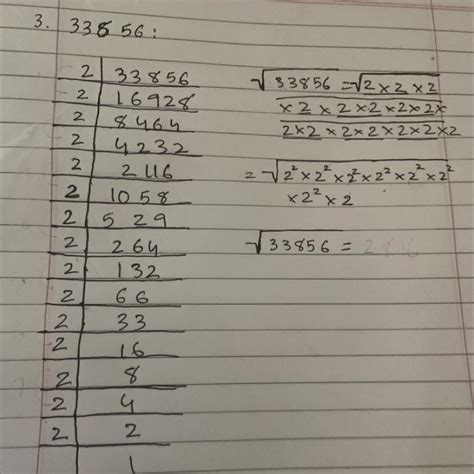 3. 33856:
2 | 33856
2 | 16928
2 | 8464
2 | 4232
2 | 2116
2 | 1058
2 | 5 29
2 | 264
2 | 132
2 | 66
2 | 33
2 | 16
2 | 8
2 | 4
2 | 2
1
√33856 = √2 × 2 × 2
× 2 × 2 × 2 × 2 × 2 ×
2 × 2 × 2 × 2 × 2 × 2 × 2
= √2² × 2² × 2² × 2² × 2² × 2²
× 2² × 2
√33856 = 2816